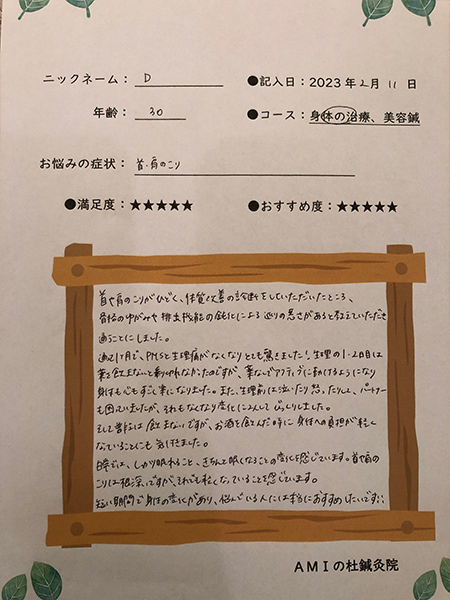 ニックネーム： D
●記入日：2023年2月11日
年齢： 30
●コース：身体の治療、美容鍼
お悩みの症状： 首・肩のこり
●満足度：★★★★★
●おすすめ度：★★★★★
首や肩のこりがひどく、体質改善の診断をしていただいたところ、
骨格のゆがみや排出機能の鈍化による巡りの悪さがあると教えていただき
通うことにしました。
通い1ヶ月で、PMSと生理痛がなくなりとても驚きました！生理の1-2日目は
薬を飲まないと乗り切れなかったのですが、薬なしでアクティブに動けるようになり
身も心もすごく楽になりました。また、生理前は泣いたり怒ったりし、パートナー
も困っていましたが、それもなくなり変化に2人してびっくりしました。
そして普段は飲まないですが、お酒を飲んだ時に身体への負担が軽く
なっていることにも気付きました。
日常では、しっかり眠れること、きちんと眠くなることの変化を感じています。首や肩の
こりは根深いですが、それでも軽くなっていることを感じています。
短い期間で身体の変化があり、悩んでいる人には本当におすすめしたいです！！
AMIの杜鍼灸院